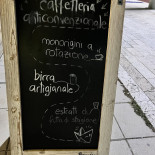 caffetteria
anticonvenzionale
monorigini a
rotazione
birra
artigianale
estratti di
frutta di stagione